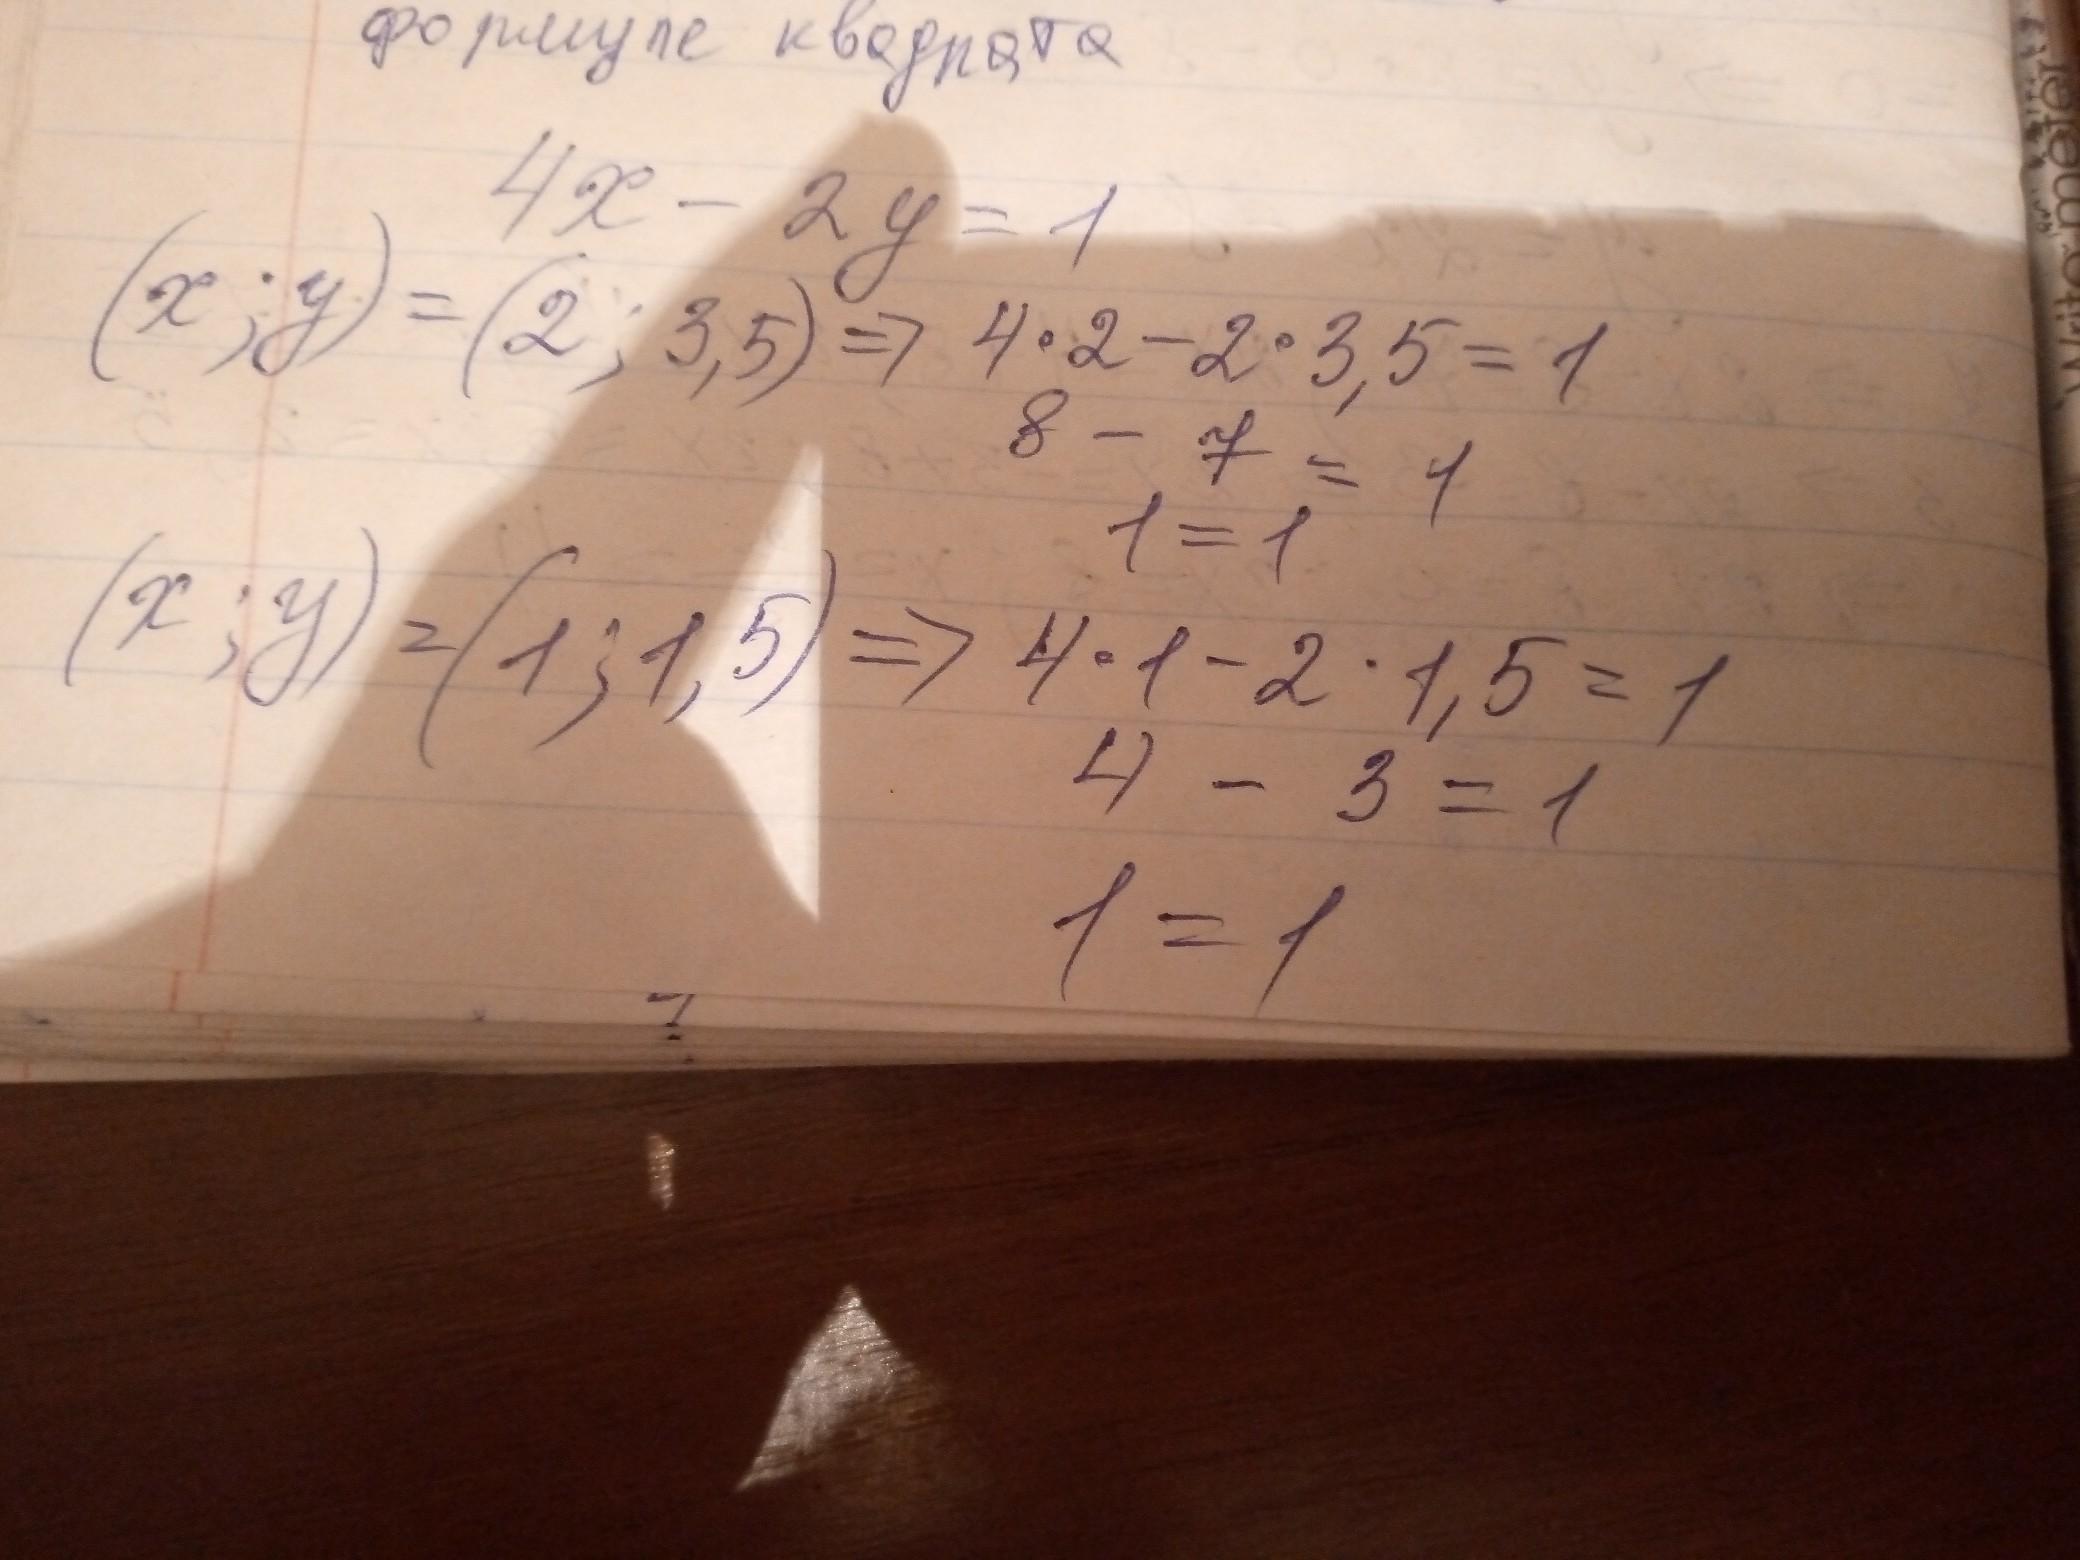 формуле квадрата
4x - 2y = 1
(x; y) = (2; 3,5) => 4·2 - 2·3,5 = 1
8 - 7 = 1
1 = 1
(x; y) = (1; 1,5) => 4·1 - 2·1,5 = 1
4 - 3 = 1
1 = 1